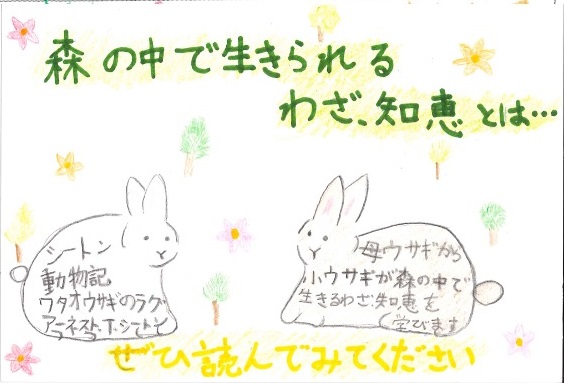 森の中で生きられる
わざ、知恵とは…
シートン
動物記
ワタオウサギのラグ
アーネスト.T.シートン
母ウサギから
小ウサギが森の中で
生きるわざ、知恵を
学びます
ぜひ読んでみてください